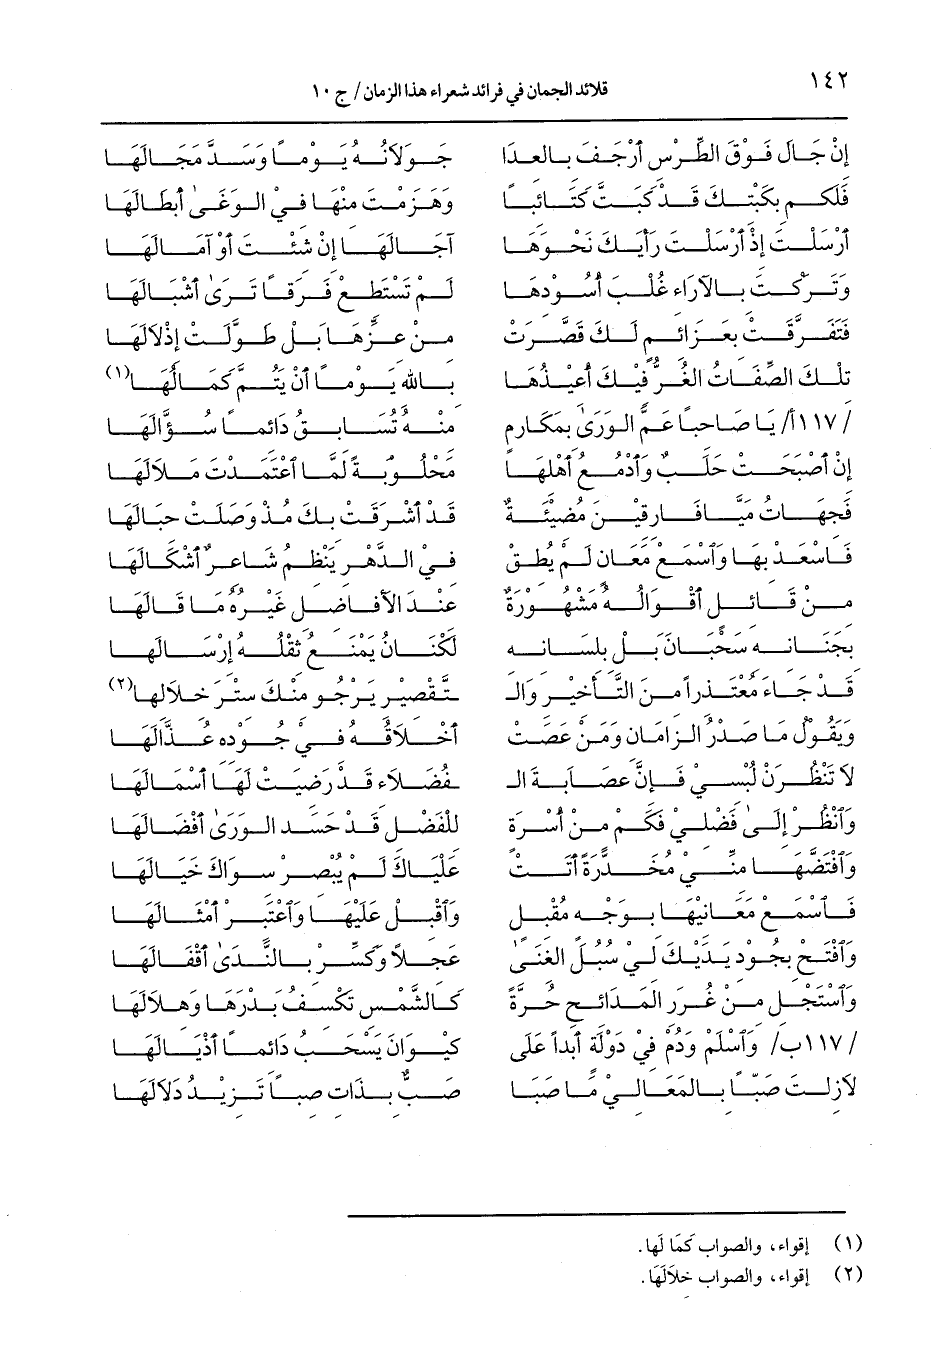 ١٤٢
قلائد الجمان في فرائد شعراء هذا الزمان / ج ١٠
إنْ جَالَ فَوْقَ الطَّرْسِ أرْجَفَ بالعدَا جَوَلانُهُ يَوْماً وَسَدَّ مَجَالَهَا
فَلَكَم بكُتبكَ قَدْ كَبَتَّ كَتَائباً وَهَزمْتَ منْهَا في الوَغَى أبطَالَهَا
أرْسَلْتَ إذْ أرْسَلْتَ رَأيَكَ نَحْوَهَا آجَالَهَا إنْ شئْتَ أوْ آمَالَهَا
وَتَركْتَ بالآرَاء غُلْبَ أُسُودهَا لَمْ تَسْتَطعْ فَرَقاً تَرَى أشْبَالَهَا
فَتَفَرَّقَتْ بعَزَائم لَكَ قَصَّرَتْ منْ عزِّهَا بَلْ طَوَّلَتْ إذْلالَهَا
تلْكَ الصِّفَاتُ الغُرُّ فيْكَ أعيْذُهَا بالله يَوْماً أن يَتمَّ كَمَالُهَا(١)
/١١٧أ/ يَا صَاحباً عَمَّ الوَرَى بمَكَارم منْهُ تُسَابقُ دَائماً سُؤَّالَهَا
إنْ أصْبَحَتْ حَلَبٌ وَأدْمُعُ أهْلهَا مَحْلُوبَةً لَمَّا اعْتَمَدْتَ مَلالَهَا
فَجهَاتُ مَيَّافَارقيْنَ مُضيْئَةٌ قَدْ أشْرَقَتْ بكَ مُذْ وَصَلْتَ حبَالَهَا
فَاسْعَدْ بهَا وَاسْمَعْ مَعَان لَمْ يُطقْ في الدَّهْر يَنْظمُ شَاعرٌ أشْكَالَهَا
منْ قَائل أقْوَالُهُ مَشْهُورَةٌ عنْدَ الأفَاضل غَيْرُهُ مَا قَالَهَا
بجَنَانه سَحْبَانُ بَلْ بلسَانه لَكنْ كَانَ يَمْنَعُ ثقْلُهُ إرْسَالَهَا
قَدْ جَاءَ مُعْتَذراً منَ التَّأخيْر وَالـ ـتَّقصيْر يَرْجُو منْكَ ستْرَ خلالهَا(٢)
وَيَقُولُ مَا صَدْرُ الزَّمَان وَمَنْ عَصَتْ أخْلاقُهُ في جُوده عُذَّالَهَا
لا تَنْظُرَنْ لُبْسي فَإنَّ عصَابَةَ الـ ـفُضَلاء قَدْ رَضيَتْ لَهَا أسْمَالَهَا
وَانْظُر إلَى فَضْلي فَكَم منْ أُسْرَة للفَضْل قَدْ حَسَدَ الوَرَى أفْضَالَهَا
وَافْتَضَّهَا منِّي مُخَدَّرَةً أتَتْ عَلْيَاكَ لَمْ يُبْصرْ سوَاكَ خَيَالَهَا
فَاسْمَعْ مَعَانيْهَا بوَجْه مُقْبل وَاقْبلْ عَلَيْهَا وَاعْتَبرْ أمْثَالَهَا
وَافْتَحْ بجُود يَدَيْكَ لي سُبُلَ الغنَى عَجلاً وَكَسِّرْ بالنَّدَى أقْفَالَهَا
وَاسْتَجْل منْ غُرَر المَدَائح حُرَّةً كَالشَّمْس تَكْسفُ بَدْرَهَا وَهلالَهَا
/١١٧ب/ وَاسْلَم وَدُمْ في دَوْلَة أبداً عَلَى كيْوَانَ يَسْحَبُ دَائماً أذْيَالَهَا
لازلْتَ صَبّاً بالمَعَالي مَا صَبَا صَبٌّ بذَات صباً تَزيْدُ دَلالَهَا
(١) إقواء، والصواب كَمَا لَها.
(٢) إقواء، والصواب خلاَلَهَا.